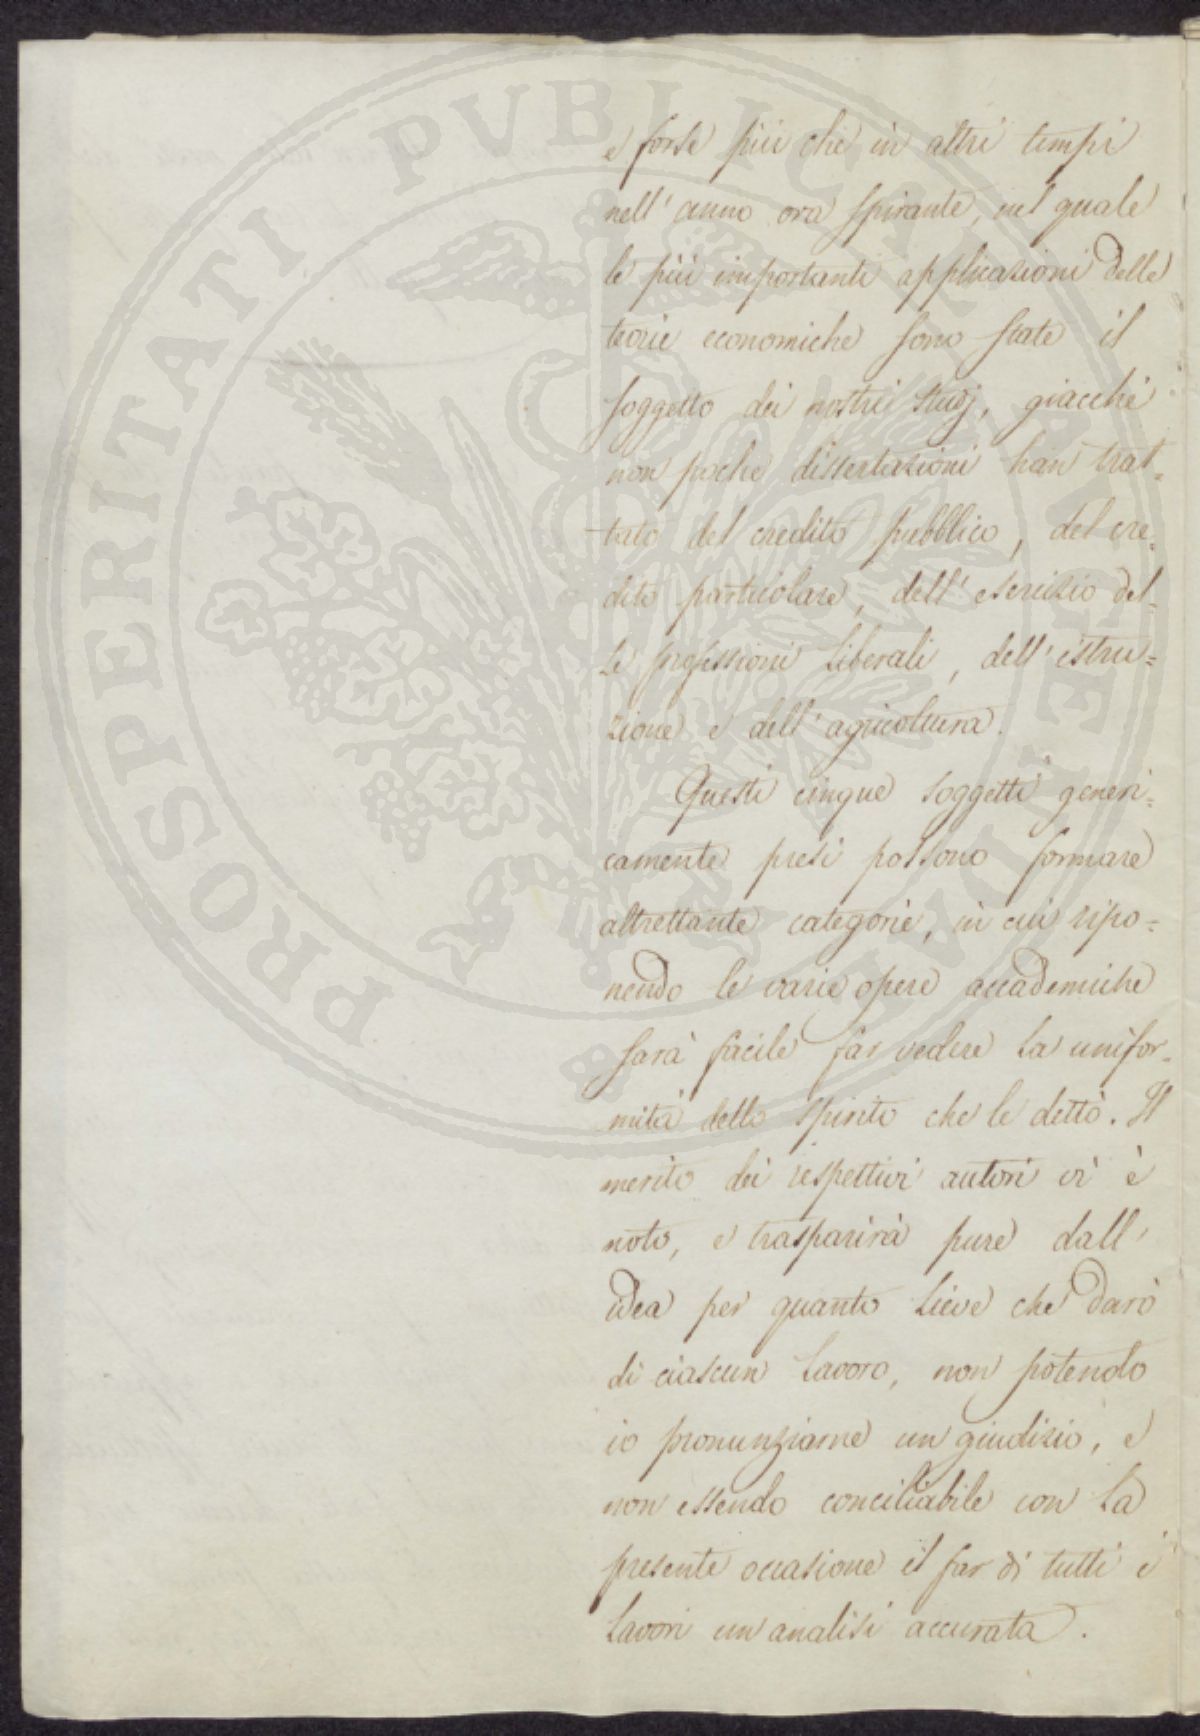 e forse più che in altri tempi
nell'anno ora spirante, nel quale
le più importanti applicazioni delle
teorie economiche sono state il
soggetto dei nostri studj, giacchè
non poche dissertazioni han trat-
tato del credito pubblico, del cre-
dito particolare, dell'esercizio del-
le professioni liberali, dell'istru-
zione e dell'agricoltura.
Questi cinque soggetti generi-
camente presi possono formare
altrettante categorie, in cui ripo-
nendo le varie opere accademiche
sarà facile far vedere la unifor-
mità dello spirito che le dettò. Il
merito dei respettivi autori vi è
noto, e trasparirà pure dall'
idea per quanto lieve che darò
di ciascun lavoro, non potendo
io pronunziarne un giudizio, e
non essendo conciliabile con la
presente occasione il far di tutti i
lavori un'analisi accurata.
PROSPERITATI PVBLICAE AVGENDAE